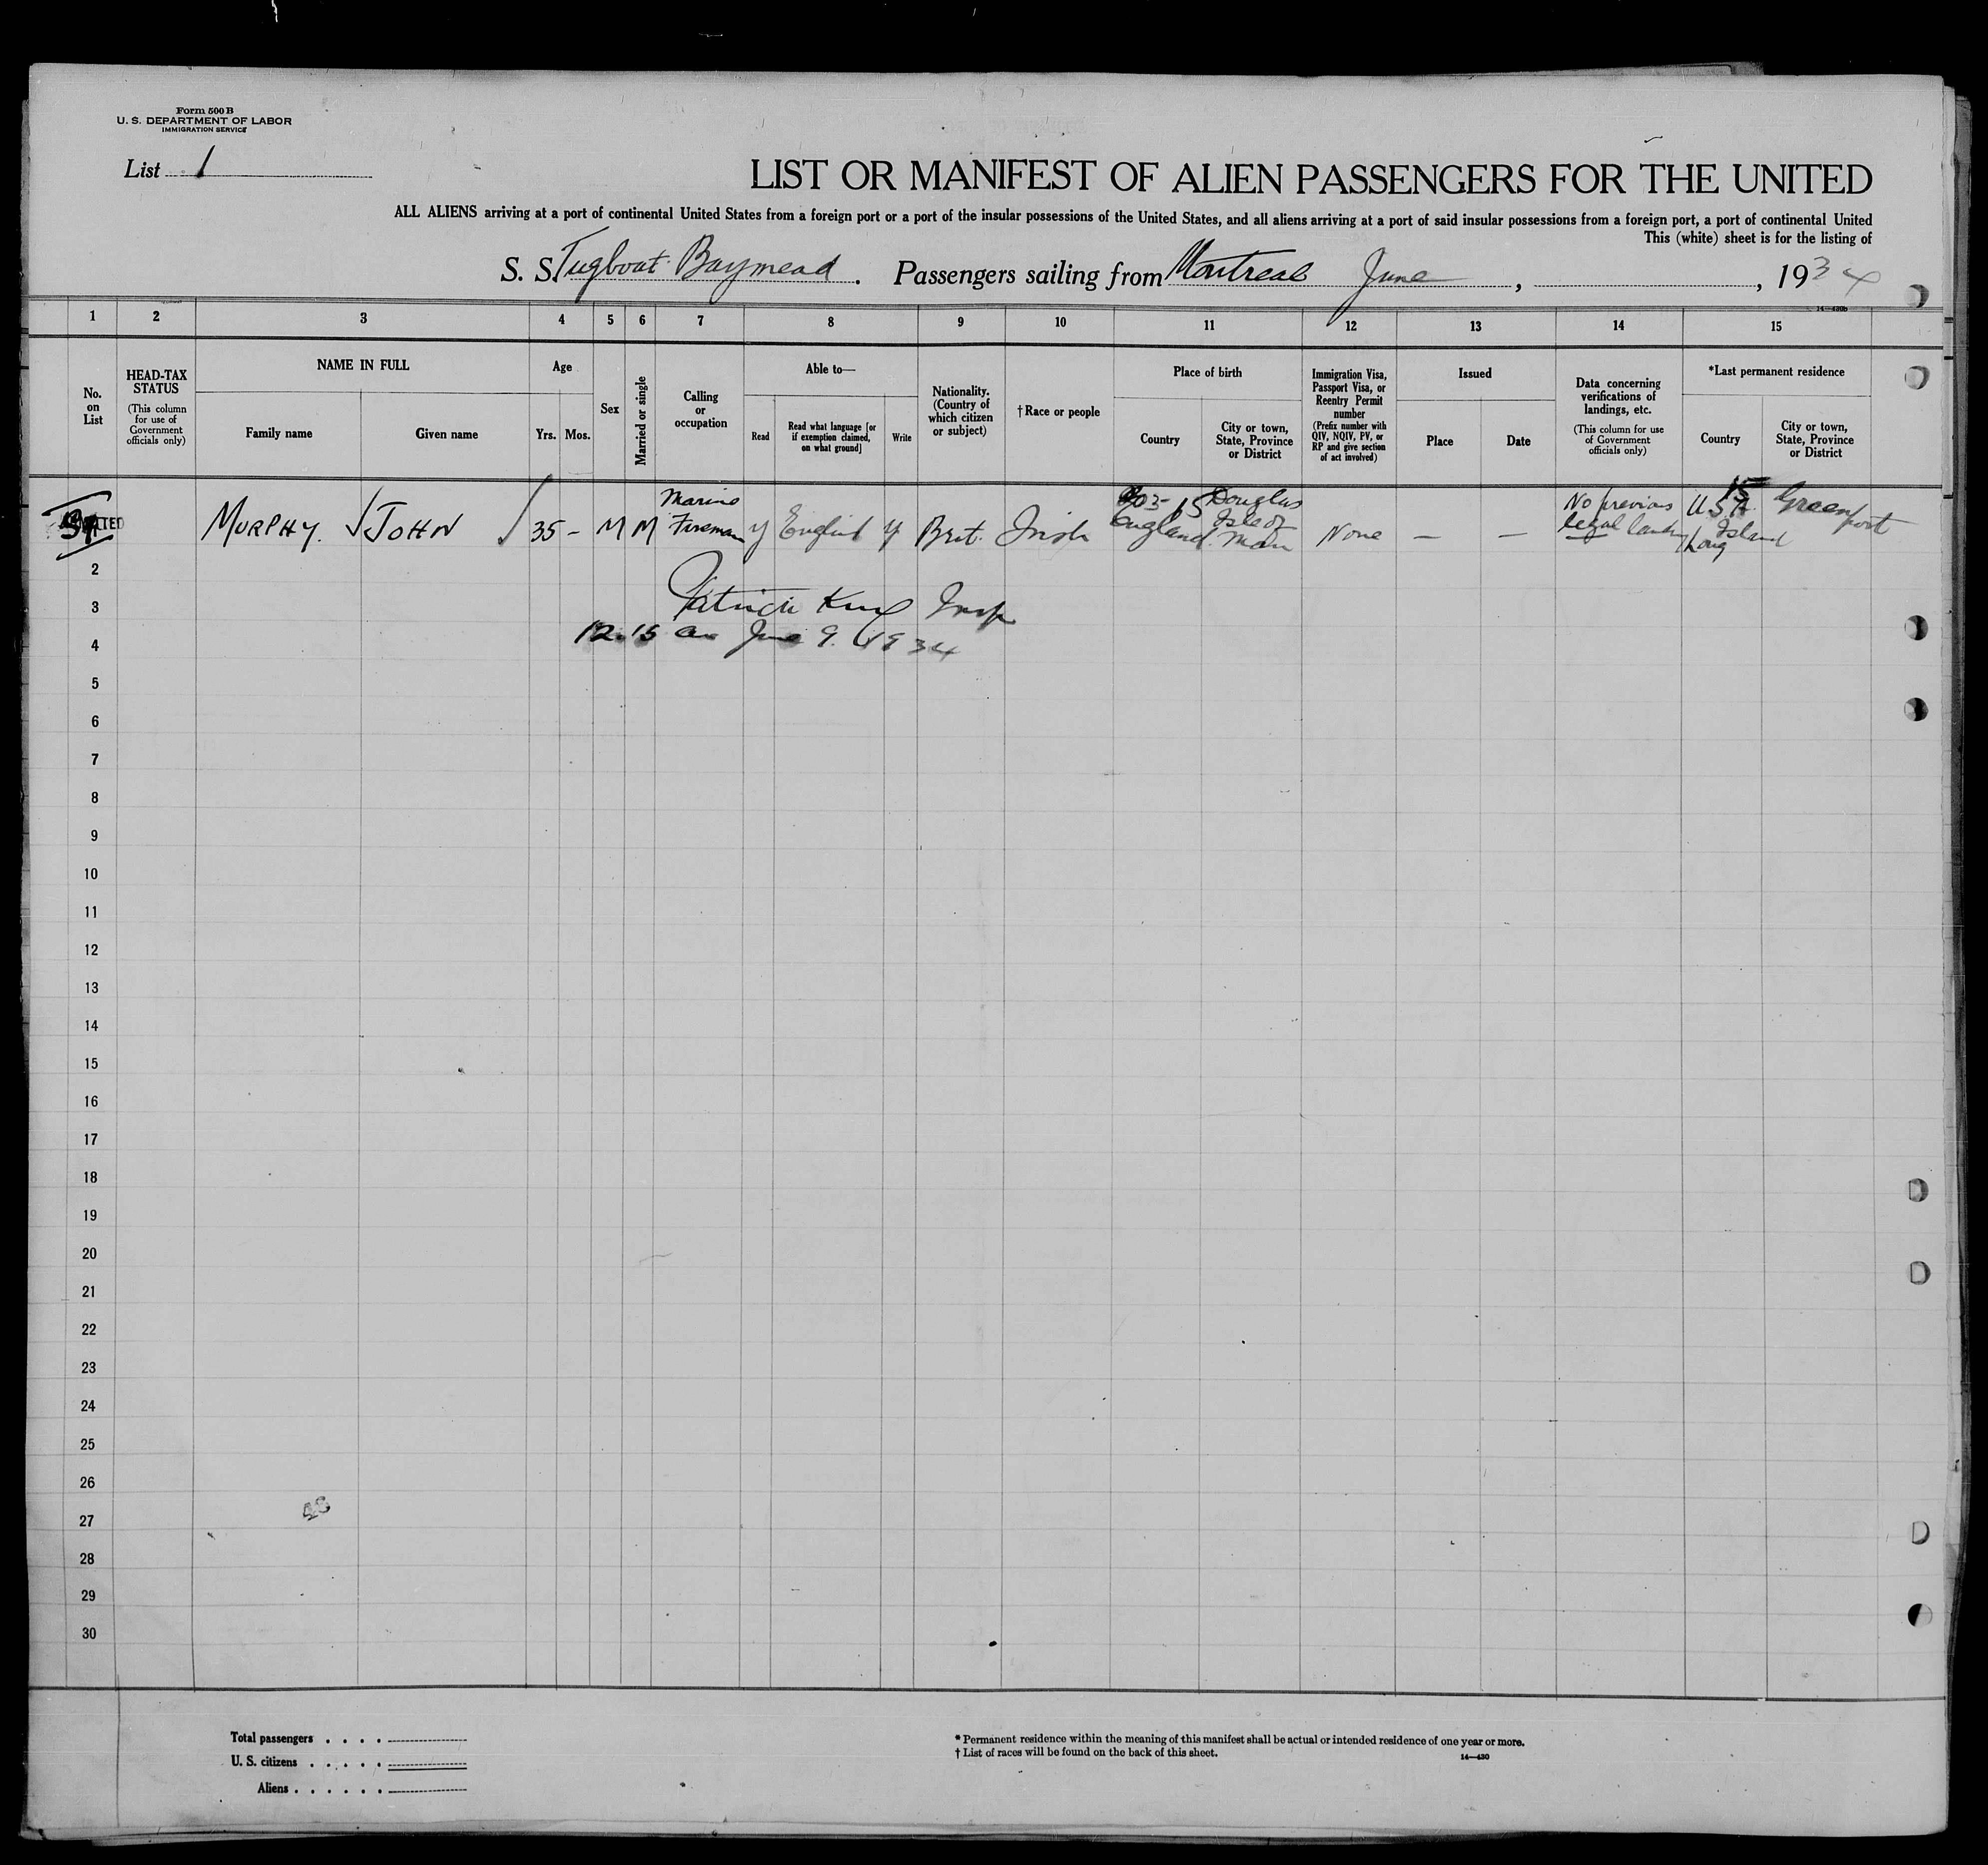 Form 500 B
U. S. DEPARTMENT OF LABOR
IMMIGRATION SERVICE
List 1
LIST OR MANIFEST OF ALIEN PASSENGERS FOR THE UNITED
ALL ALIENS arriving at a port of continental United States from a foreign port or a port of the insular possessions of the United States, and all aliens arriving at a port of said insular possessions from a foreign port, a port of continental United
This (white) sheet is for the listing of
S. S. Tugboat Baymead. Passengers sailing from Montreal June, , 1934
14—430b
1 2 3 4 5 6 7 8 9 10 11 12 13 14 15
No. on List
HEAD-TAX STATUS (This column for use of Government officials only)
NAME IN FULL
Family name
Given name
Age
Yrs. Mos.
Sex
Married or single
Calling or occupation
Able to—
Read
Read what language [or if exemption claimed, on what ground]
Write
Nationality. (Country of which citizen or subject)
† Race or people
Place of birth
Country
City or town, State, Province or District
Immigration Visa, Passport Visa, or Reentry Permit number (Prefix number with QIV, NQIV, PV, or RP and give section of act involved)
Issued
Place
Date
Data concerning verifications of landings, etc. (This column for use of Government officials only)
*Last permanent residence
Country
City or town, State, Province or District
MURPHY. JOHN 35 – M M Marine Fireman y English y Brit. Irish England Douglas Isle of Man None — — No previous legal landing 15 U.S.A. Greenport Long Island
2
Patrick King Insp
3
12.15 am June 9. 1934
4
5
6
7
8
9
10
11
12
13
14
15
16
17
18
19
20
21
22
23
24
25
26
48
27
28
29
30
Total passengers . . . .
U. S. citizens . . . . .
Aliens . . . . . .
* Permanent residence within the meaning of this manifest shall be actual or intended residence of one year or more.
† List of races will be found on the back of this sheet.
14—430